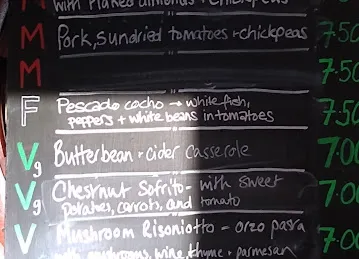 with flaked almonds + chickpeas
M Pork, sundried tomatoes + chickpeas 7.50
M 7.50
F Pescado cocho → white fish, 7.50
peppers + white beans in tomatoes
Vg Butterbean + cider casserole 7.00
Vg Chestnut Sofrito - with sweet 7.00
potatoes, carrots, and tomato
V Mushroom Risoniotto - orzo pasta 7.00
with mushrooms, wine, thyme + parmesan